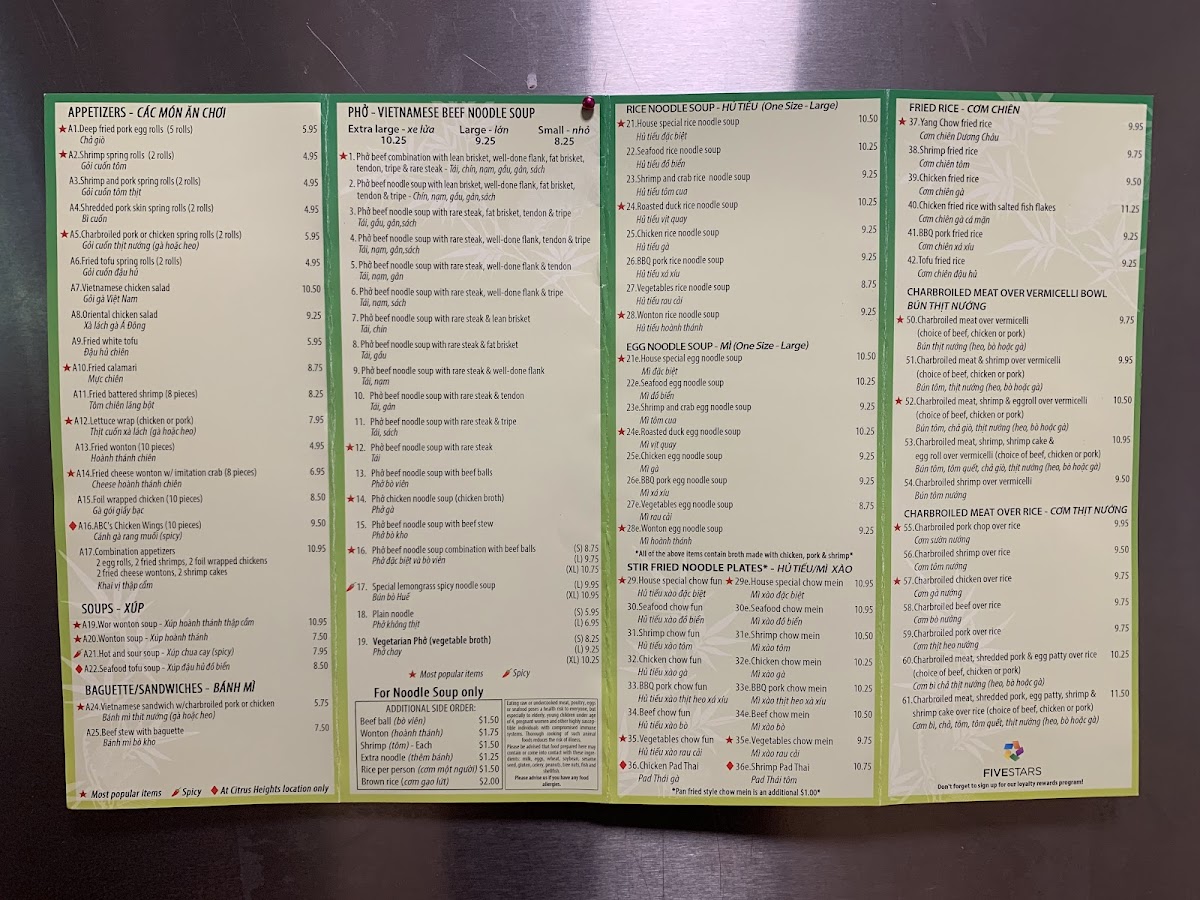 APPETIZERS - CÁC MÓN ĂN CHƠI
A1.Deep fried pork egg rolls (5 rolls) 5.95
Chả giò
A2.Shrimp spring rolls (2 rolls) 4.95
Gỏi cuốn tôm
A3.Shrimp and pork spring rolls (2 rolls) 4.95
Gỏi cuốn tôm thịt
A4.Shredded pork skin spring rolls (2 rolls) 4.95
Bì cuốn
A5.Charbroiled pork or chicken spring rolls (2 rolls) 5.95
Gỏi cuốn thịt nướng (gà hoặc heo)
A6.Fried tofu spring rolls (2 rolls) 4.95
Gỏi cuốn đậu hủ
A7.Vietnamese chicken salad 10.50
Gỏi gà Việt Nam
A8.Oriental chicken salad 9.25
Xà lách gà Á Đông
A9.Fried white tofu 5.95
Đậu hủ chiên
A10.Fried calamari 8.75
Mực chiên
A11.Fried battered shrimp (8 pieces) 8.25
Tôm chiên lăng bột
A12.Lettuce wrap (chicken or pork) 7.95
Thịt cuốn xà lách (gà hoặc heo)
A13.Fried wonton (10 pieces) 4.95
Hoành thánh chiên
A14.Fried cheese wonton w/ imitation crab (8 pieces) 6.95
Cheese hoành thánh chiên
A15.Foil wrapped chicken (10 pieces) 8.50
Gà gói giấy bạc
A16.ABC's Chicken Wings (10 pieces) 9.50
Cánh gà rang muối (spicy)
A17.Combination appetizers 10.95
2 egg rolls, 2 fried shrimps, 2 foil wrapped chickens
2 fried cheese wontons, 2 shrimp cakes
Khai vị thập cẩm
SOUPS - XÚP
A19.Wor wonton soup - Xúp hoành thánh thập cẩm 10.95
A20.Wonton soup - Xúp hoành thánh 7.50
A21.Hot and sour soup - Xúp chua cay (spicy) 7.95
A22.Seafood tofu soup - Xúp đậu hủ đồ biển 8.50
BAGUETTE/SANDWICHES - BÁNH MÌ
A24.Vietnamese sandwich w/charbroiled pork or chicken 5.75
Bánh mì thịt nướng (gà hoặc heo)
A25.Beef stew with baguette 7.50
Bánh mì bò kho
Most popular items Spicy At Citrus Heights location only
PHỞ - VIETNAMESE BEEF NOODLE SOUP
Extra large - xe lửa Large - lớn Small - nhỏ
10.25 9.25 8.25
1. Phở beef combination with lean brisket, well-done flank, fat brisket,
tendon, tripe & rare steak - Tái, chín, nạm, gầu, gân, sách
2. Phở beef noodle soup with lean brisket, well-done flank, fat brisket,
tendon & tripe - Chín, nạm, gầu, gân,sách
3. Phở beef noodle soup with rare steak, fat brisket, tendon & tripe
Tái, gầu, gân,sách
4. Phở beef noodle soup with rare steak, well-done flank, tendon & tripe
Tái, nạm, gân,sách
5. Phở beef noodle soup with rare steak, well-done flank & tendon
Tái, nạm, gân
6. Phở beef noodle soup with rare steak, well-done flank & tripe
Tái, nạm, sách
7. Phở beef noodle soup with rare steak & lean brisket
Tái, chín
8. Phở beef noodle soup with rare steak & fat brisket
Tái, gầu
9. Phở beef noodle soup with rare steak & well-done flank
Tái, nạm
10. Phở beef noodle soup with rare steak & tendon
Tái, gân
11. Phở beef noodle soup with rare steak & tripe
Tái, sách
12. Phở beef noodle soup with rare steak
Tái
13. Phở beef noodle soup with beef balls
Phở bò viên
14. Phở chicken noodle soup (chicken broth)
Phở gà
15. Phở beef noodle soup with beef stew
Phở bò kho
16. Phở beef noodle soup combination with beef balls (S) 8.75
Phở đặc biệt và bò viên (L) 9.75
(XL) 10.75
17. Special lemongrass spicy noodle soup (L) 9.95
Bún bò Huế (XL) 10.95
18. Plain noodle (S) 5.95
Phở không thịt (L) 6.95
19. Vegetarian Phở (vegetable broth) (S) 8.25
Phở chay (L) 9.25
(XL) 10.25
Most popular items Spicy
For Noodle Soup only
ADDITIONAL SIDE ORDER:
Beef ball (bò viên) $1.50
Wonton (hoành thánh) $1.75
Shrimp (tôm) - Each $1.50
Extra noodle (thêm bánh) $1.25
Rice per person (cơm một người) $1.50
Brown rice (cơm gạo lứt) $2.00
Eating raw or undercooked meat, poultry, eggs
or seafood poses a health risk to everyone, but
especially to elderly, young children under age
of 6, pregnant women and other highly suscep-
tible individuals with compromised immune
systems. Thorough cooking of such animal
foods reduces the risk of illness.
Please be advised that food prepared here may
contain or come into contact with these ingre-
dients: milk, eggs, wheat, soybean, sesame
seed, gluten, celery, peanuts, tree nuts, fish and
shellfish.
Please advise us if you have any food
allergies.
RICE NOODLE SOUP - HỦ TIẾU (One Size - Large)
21.House special rice noodle soup 10.50
Hủ tiếu đặc biệt
22.Seafood rice noodle soup 10.25
Hủ tiếu đồ biển
23.Shrimp and crab rice noodle soup 9.25
Hủ tiếu tôm cua
24.Roasted duck rice noodle soup 10.25
Hủ tiếu vịt quay
25.Chicken rice noodle soup 9.25
Hủ tiếu gà
26.BBQ pork rice noodle soup 9.25
Hủ tiếu xá xíu
27.Vegetables rice noodle soup 8.75
Hủ tiếu rau cải
28.Wonton rice noodle soup 9.25
Hủ tiếu hoành thánh
EGG NOODLE SOUP - MÌ (One Size - Large)
21e.House special egg noodle soup 10.50
Mì đặc biệt
22e.Seafood egg noodle soup 10.25
Mì đồ biển
23e.Shrimp and crab egg noodle soup 9.25
Mì tôm cua
24e.Roasted duck egg noodle soup 10.25
Mì vịt quay
25e.Chicken egg noodle soup 9.25
Mì gà
26e.BBQ pork egg noodle soup 9.25
Mì xá xíu
27e.Vegetables egg noodle soup 8.75
Mì rau cải
28e.Wonton egg noodle soup 9.25
Mì hoành thánh
*All of the above items contain broth made with chicken, pork & shrimp*
STIR FRIED NOODLE PLATES* - HỦ TIẾU/MÌ XÀO
29.House special chow fun 29e.House special chow mein 10.95
Hủ tiếu xào đặc biệt Mì xào đặc biệt
30.Seafood chow fun 30e.Seafood chow mein 10.95
Hủ tiếu xào đồ biển Mì xào đồ biển
31.Shrimp chow fun 31e.Shrimp chow mein 10.50
Hủ tiếu xào tôm Mì xào tôm
32.Chicken chow fun 32e.Chicken chow mein 10.25
Hủ tiếu xào gà Mì xào gà
33.BBQ pork chow fun 33e.BBQ pork chow mein 10.25
Hủ tiếu xào thịt heo xá xíu Mì xào thịt heo xá xíu
34.Beef chow fun 34e.Beef chow mein 10.25
Hủ tiếu xào bò Mì xào bò
35.Vegetables chow fun 35e.Vegetables chow mein 9.75
Hủ tiếu xào rau cải Mì xào rau cải
36.Chicken Pad Thai 36e.Shrimp Pad Thai 10.75
Pad Thái gà Pad Thái tôm
*Pan fried style chow mein is an additional $1.00*
FRIED RICE - CƠM CHIÊN
37.Yang Chow fried rice 9.95
Cơm chiên Dương Châu
38.Shrimp fried rice 9.75
Cơm chiên tôm
39.Chicken fried rice 9.50
Cơm chiên gà
40.Chicken fried rice with salted fish flakes 11.25
Cơm chiên gà cá mặn
41.BBQ pork fried rice 9.25
Cơm chiên xá xíu
42.Tofu fried rice 9.25
Cơm chiên đậu hủ
CHARBROILED MEAT OVER VERMICELLI BOWL
BÚN THỊT NƯỚNG
50.Charbroiled meat over vermicelli 9.75
(choice of beef, chicken or pork)
Bún thịt nướng (heo, bò hoặc gà)
51.Charbroiled meat & shrimp over vermicelli 9.95
(choice of beef, chicken or pork)
Bún tôm, thịt nướng (heo, bò hoặc gà)
52.Charbroiled meat, shrimp & eggroll over vermicelli 10.50
(choice of beef, chicken or pork)
Bún tôm, chả giò, thịt nướng (heo, bò hoặc gà)
53.Charbroiled meat, shrimp, shrimp cake & 10.95
egg roll over vermicelli (choice of beef, chicken or pork)
Bún tôm, tôm quết, chả giò, thịt nướng (heo, bò hoặc gà)
54.Charbroiled shrimp over vermicelli 9.50
Bún tôm nướng
CHARBROILED MEAT OVER RICE - CƠM THỊT NƯỚNG
55.Charbroiled pork chop over rice 9.95
Cơm sườn nướng
56.Charbroiled shrimp over rice 9.50
Cơm tôm nướng
57.Charbroiled chicken over rice 9.75
Cơm gà nướng
58.Charbroiled beef over rice 9.75
Cơm bò nướng
59.Charbroiled pork over rice 9.75
Cơm thịt heo nướng
60.Charbroiled meat, shredded pork & egg patty over rice 10.25
(choice of beef, chicken or pork)
Cơm bì chả thịt nướng (heo, bò hoặc gà)
61.Charbroiled meat, shredded pork, egg patty, shrimp & 11.50
shrimp cake over rice (choice of beef, chicken or pork)
Cơm bì, chả, tôm, tôm quết, thịt nướng (heo, bò hoặc gà)
FIVESTARS
Don't forget to sign up for our loyalty rewards program!